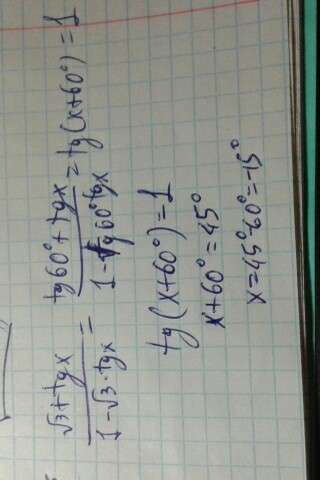 (√3+tgx)/(1-√3·tgx) = (tg60°+tgx)/(1-tg60°tgx) = tg(x+60°)=1
tg(x+60°)=1
x+60°=45°
x=45°-60°=-15°